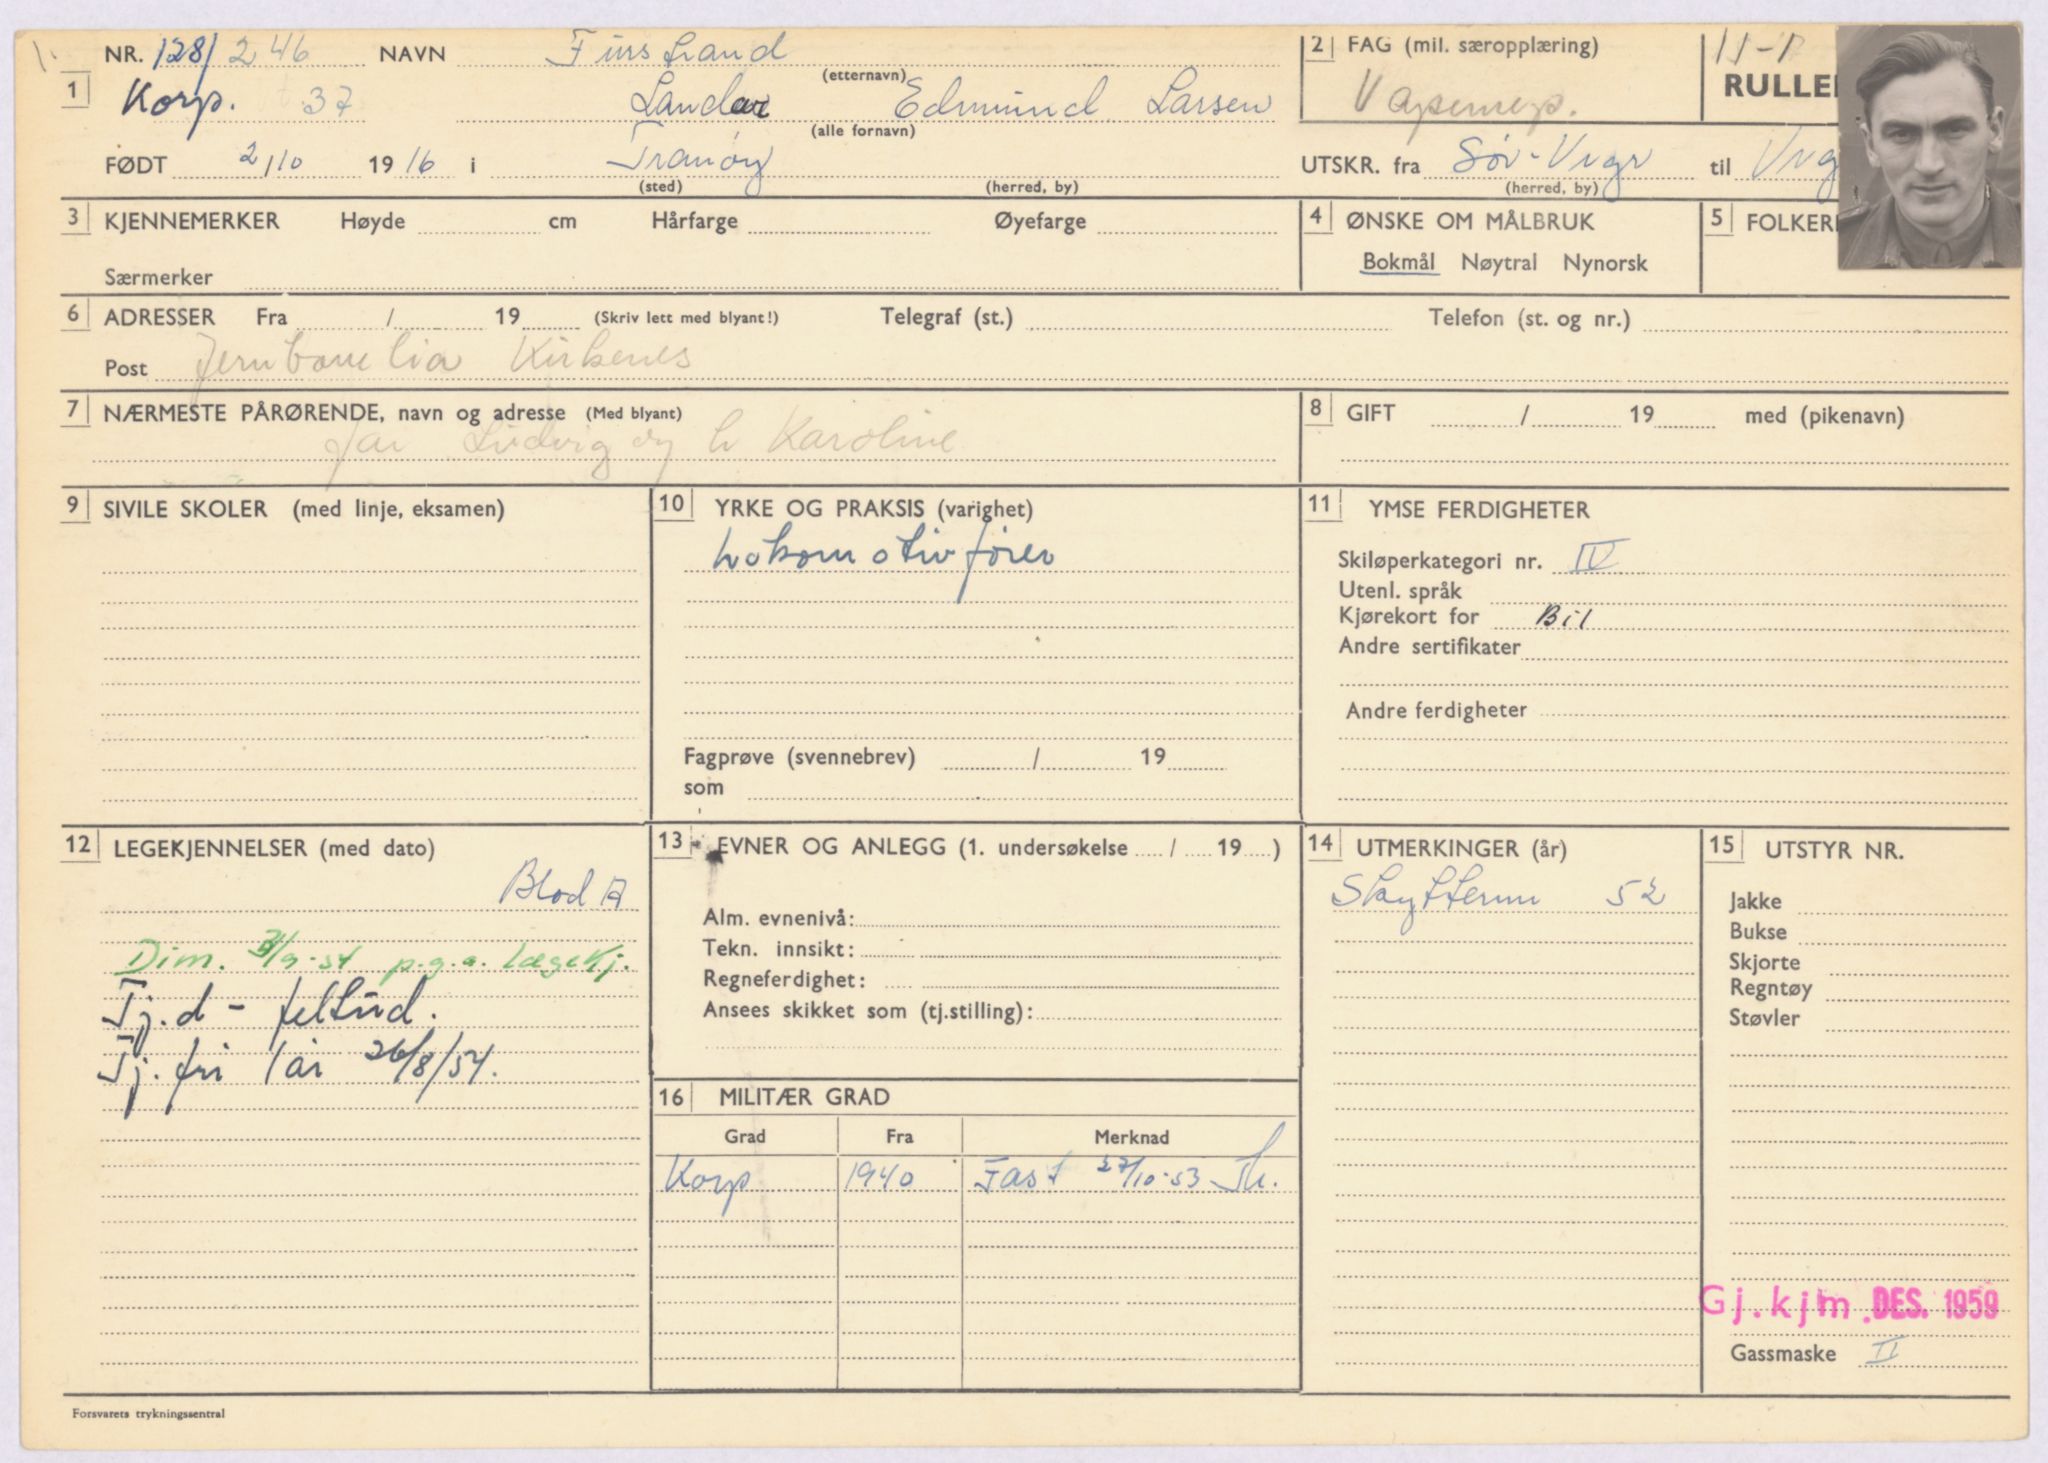 NR. 128/246 NAVN Finstrand 2 FAG (mil. særopplæring) RULLE
(etternavn)
1 Korp. 37 Landar Edmund Larsen
(alle fornavn)
FØDT 2/10 1916 i Tranøy UTSKR. fra Sør-Vrgr til Vrg
(sted) (herred, by) (herred, by)
3 KJENNEMERKER Høyde cm Hårfarge Øyefarge 4 ØNSKE OM MÅLBRUK 5 FOLKER
Bokmål Nøytral Nynorsk
Særmerker
6 ADRESSER Fra / 19 (Skriv lett med blyant!) Telegraf (st.) Telefon (st. og nr.)
Post Jernbanelia Kirkenes
7 NÆRMESTE PÅRØRENDE, navn og adresse (Med blyant) 8 GIFT / 19 med (pikenavn)
far Ludvig og h Karoline
9 SIVILE SKOLER (med linje, eksamen) 10 YRKE OG PRAKSIS (varighet) 11 YMSE FERDIGHETER
Lokomotivfører
Skiløperkategori nr. IV
Utenl. språk
Kjørekort for Bil
Andre sertifikater
Andre ferdigheter
Fagprøve (svennebrev) / 19
som
12 LEGEKJENNELSER (med dato) 13 EVNER OG ANLEGG (1. undersøkelse / 19 ) 14 UTMERKINGER (år) 15 UTSTYR NR.
Blod A
Skytterm 52
Jakke
Alm. evnenivå:
Bukse
Dim. 3/9-54 p.g.a. lægekj.
Tekn. innsikt:
Skjorte
Regneferdighet:
Regntøy
Tj.d - feltud.
Ansees skikket som (tj.stilling):
Støvler
Tj. fri 1 år 26/8/54.
16 MILITÆR GRAD
Grad Fra Merknad
Korp 1940 Fast 27/10-53
Gj.kjm.DES. 1959
Gassmaske II
Forsvarets trykningssentral